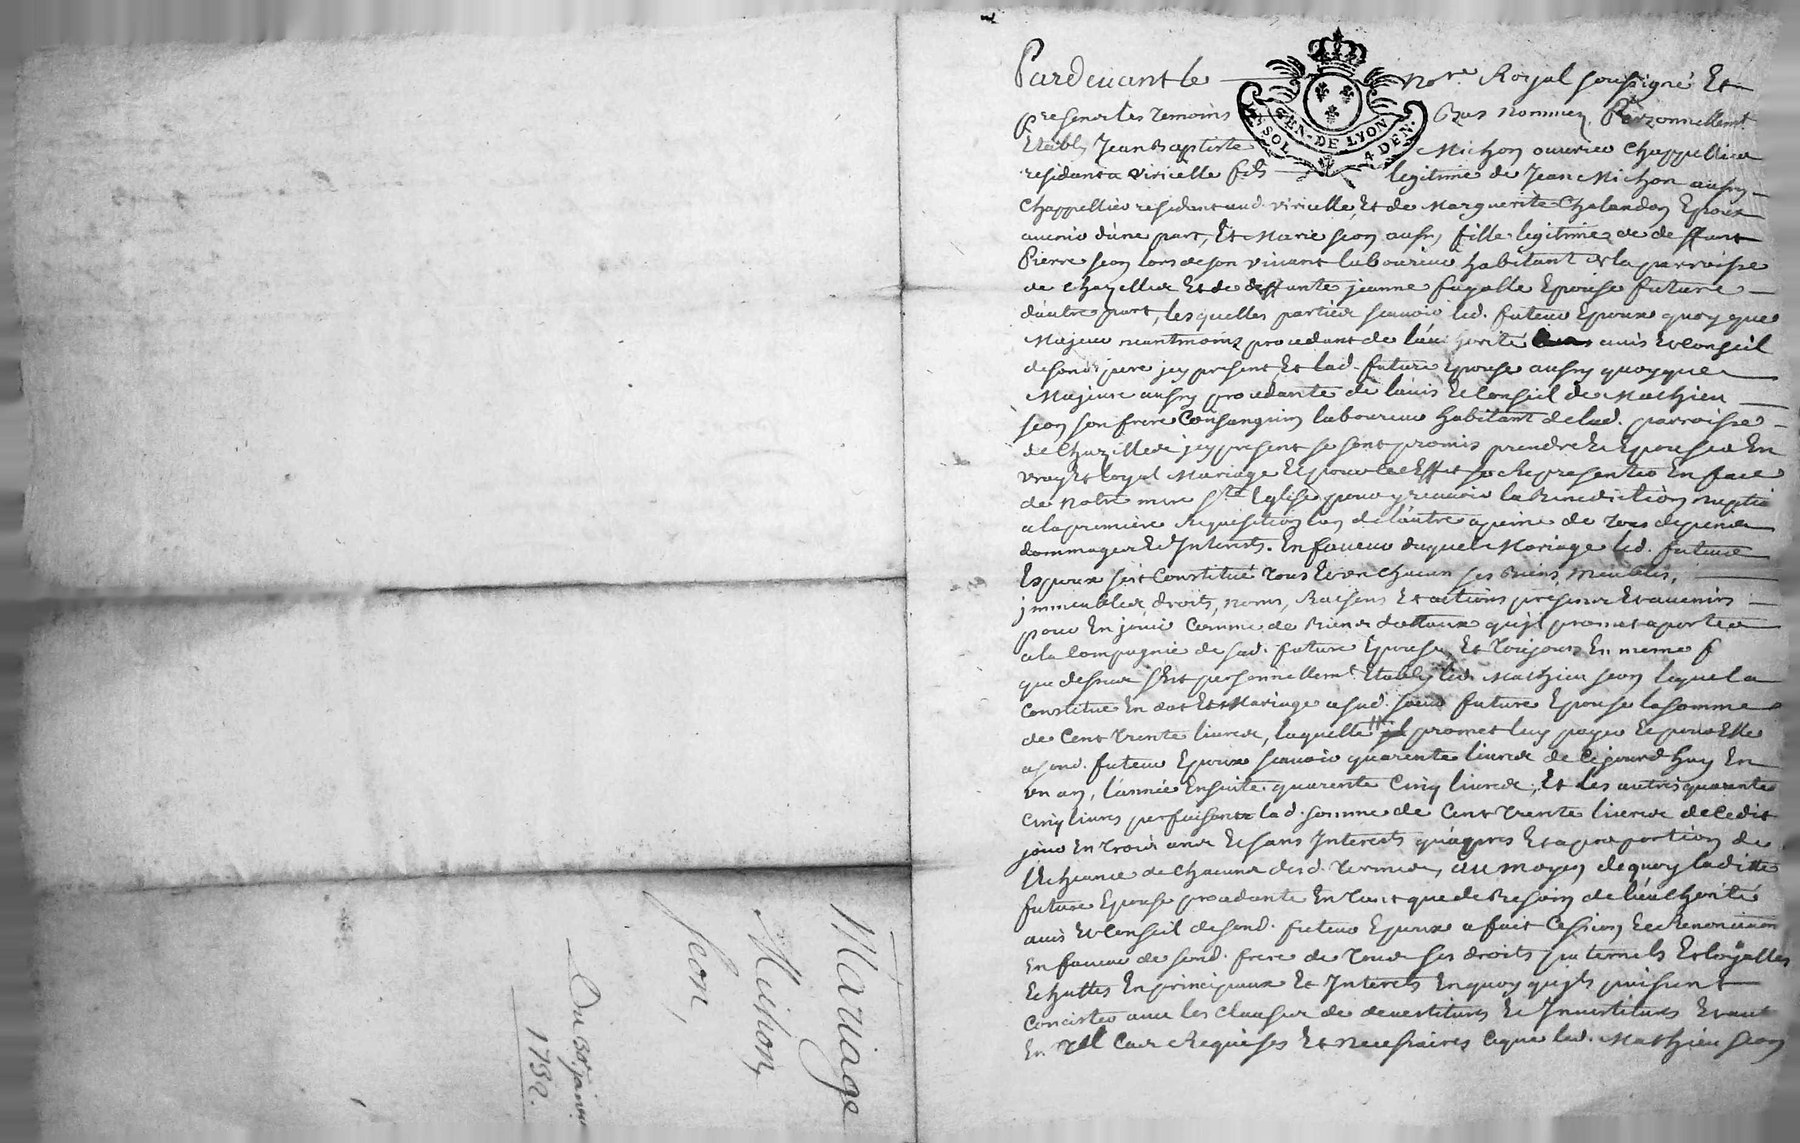 Mariage
Michon,
Seon,
Du janv.
1732.
GEN-DE LYON
SOL 4 DEN.
Pardeuant le no.re Royal sousigné Et
presens les temoins Bas nommez, Personnellem.t
Estably Jean Baptiste Michon ouurier Chappellier
residant a viricelle fils legitime de Jean Michon aussy
Chappellier residant aud. viricelle, Et de Marguerite Chalandon Epoux
auenir d'une part, Et Marie seon aussy fille legitime de deffunt
Pierre seon lors de son viuant laboureur habitant de la parroisse
de Chazelles Et de deffunte jeanne fayolle Epouse future
d'autre part, lesquelles parties scauoir led. futeur Epoux quoy que
Majeur neantmoins procedant de l'authorité auis Et Conseil
de sond. pere jcy present, Et lad. future Epouse aussy quoyque
Majeure aussy procedante de l'auis Et Conseil de Mathieu
seon son frere Consanguin laboureur habitant de lad. parroisse
de Chazelles jcy present se sont promis prendre Et Epouser En
vray Et loyal Mariage Et pour cet Effet se Representer En face
de notre mere s.te Eglise pour y receuoir la Benediction nuptia
a la premiere Requisition lun de l'autre a peine de tous depens
dommages Et Interests. En faueur duquel Mariage led. futeur
Espoux sest Constitué tous Et vn Chacun ses Biens, meubles,
jmmeubles, droits, noms, Raisons Et actions presens Et auenirs
pour En jouir Comme de Biens dottaux qu'jl promet aporter
a la Compagnie de sad. future Epouse, Et toujours En meme f
que dessus s'Est personnellem.t Estably led. Mathieu seon lequel a
Constitué En dot Et Mariage a sad. soeur future Epouse la somme
de Cent trente liures, laquelle jl promet luy payer Et pour Elle
a sond. futeur Epoux scauoir quarente liures de Cejourd'huy En
vn an, l'année Ensuite quarente Cinq liures, Et les autres quarante
Cinq liures perfaisant lad. somme de Cent trente liures de Cedit
jour En trois ans Et sans Interests qu'apres Et a proportion de
l'Echeance de Chacuns desd. termes, au moyen de quoy laditte
future Epouse procedante En tant que de Besoin de l'authorité
auis Et Conseil de sond. futeur Epoux a fait Cession Et Renonciation
En faueur de sond. frere de tous ses droits paternels Et
Echuttes En principaux Et Interests En quoy qu'jls puissent
Concister auec les Clauses de deuestitures Et Inuestitures
En tel Cas Requises Et necessaires Ce que led. Mathieu seon